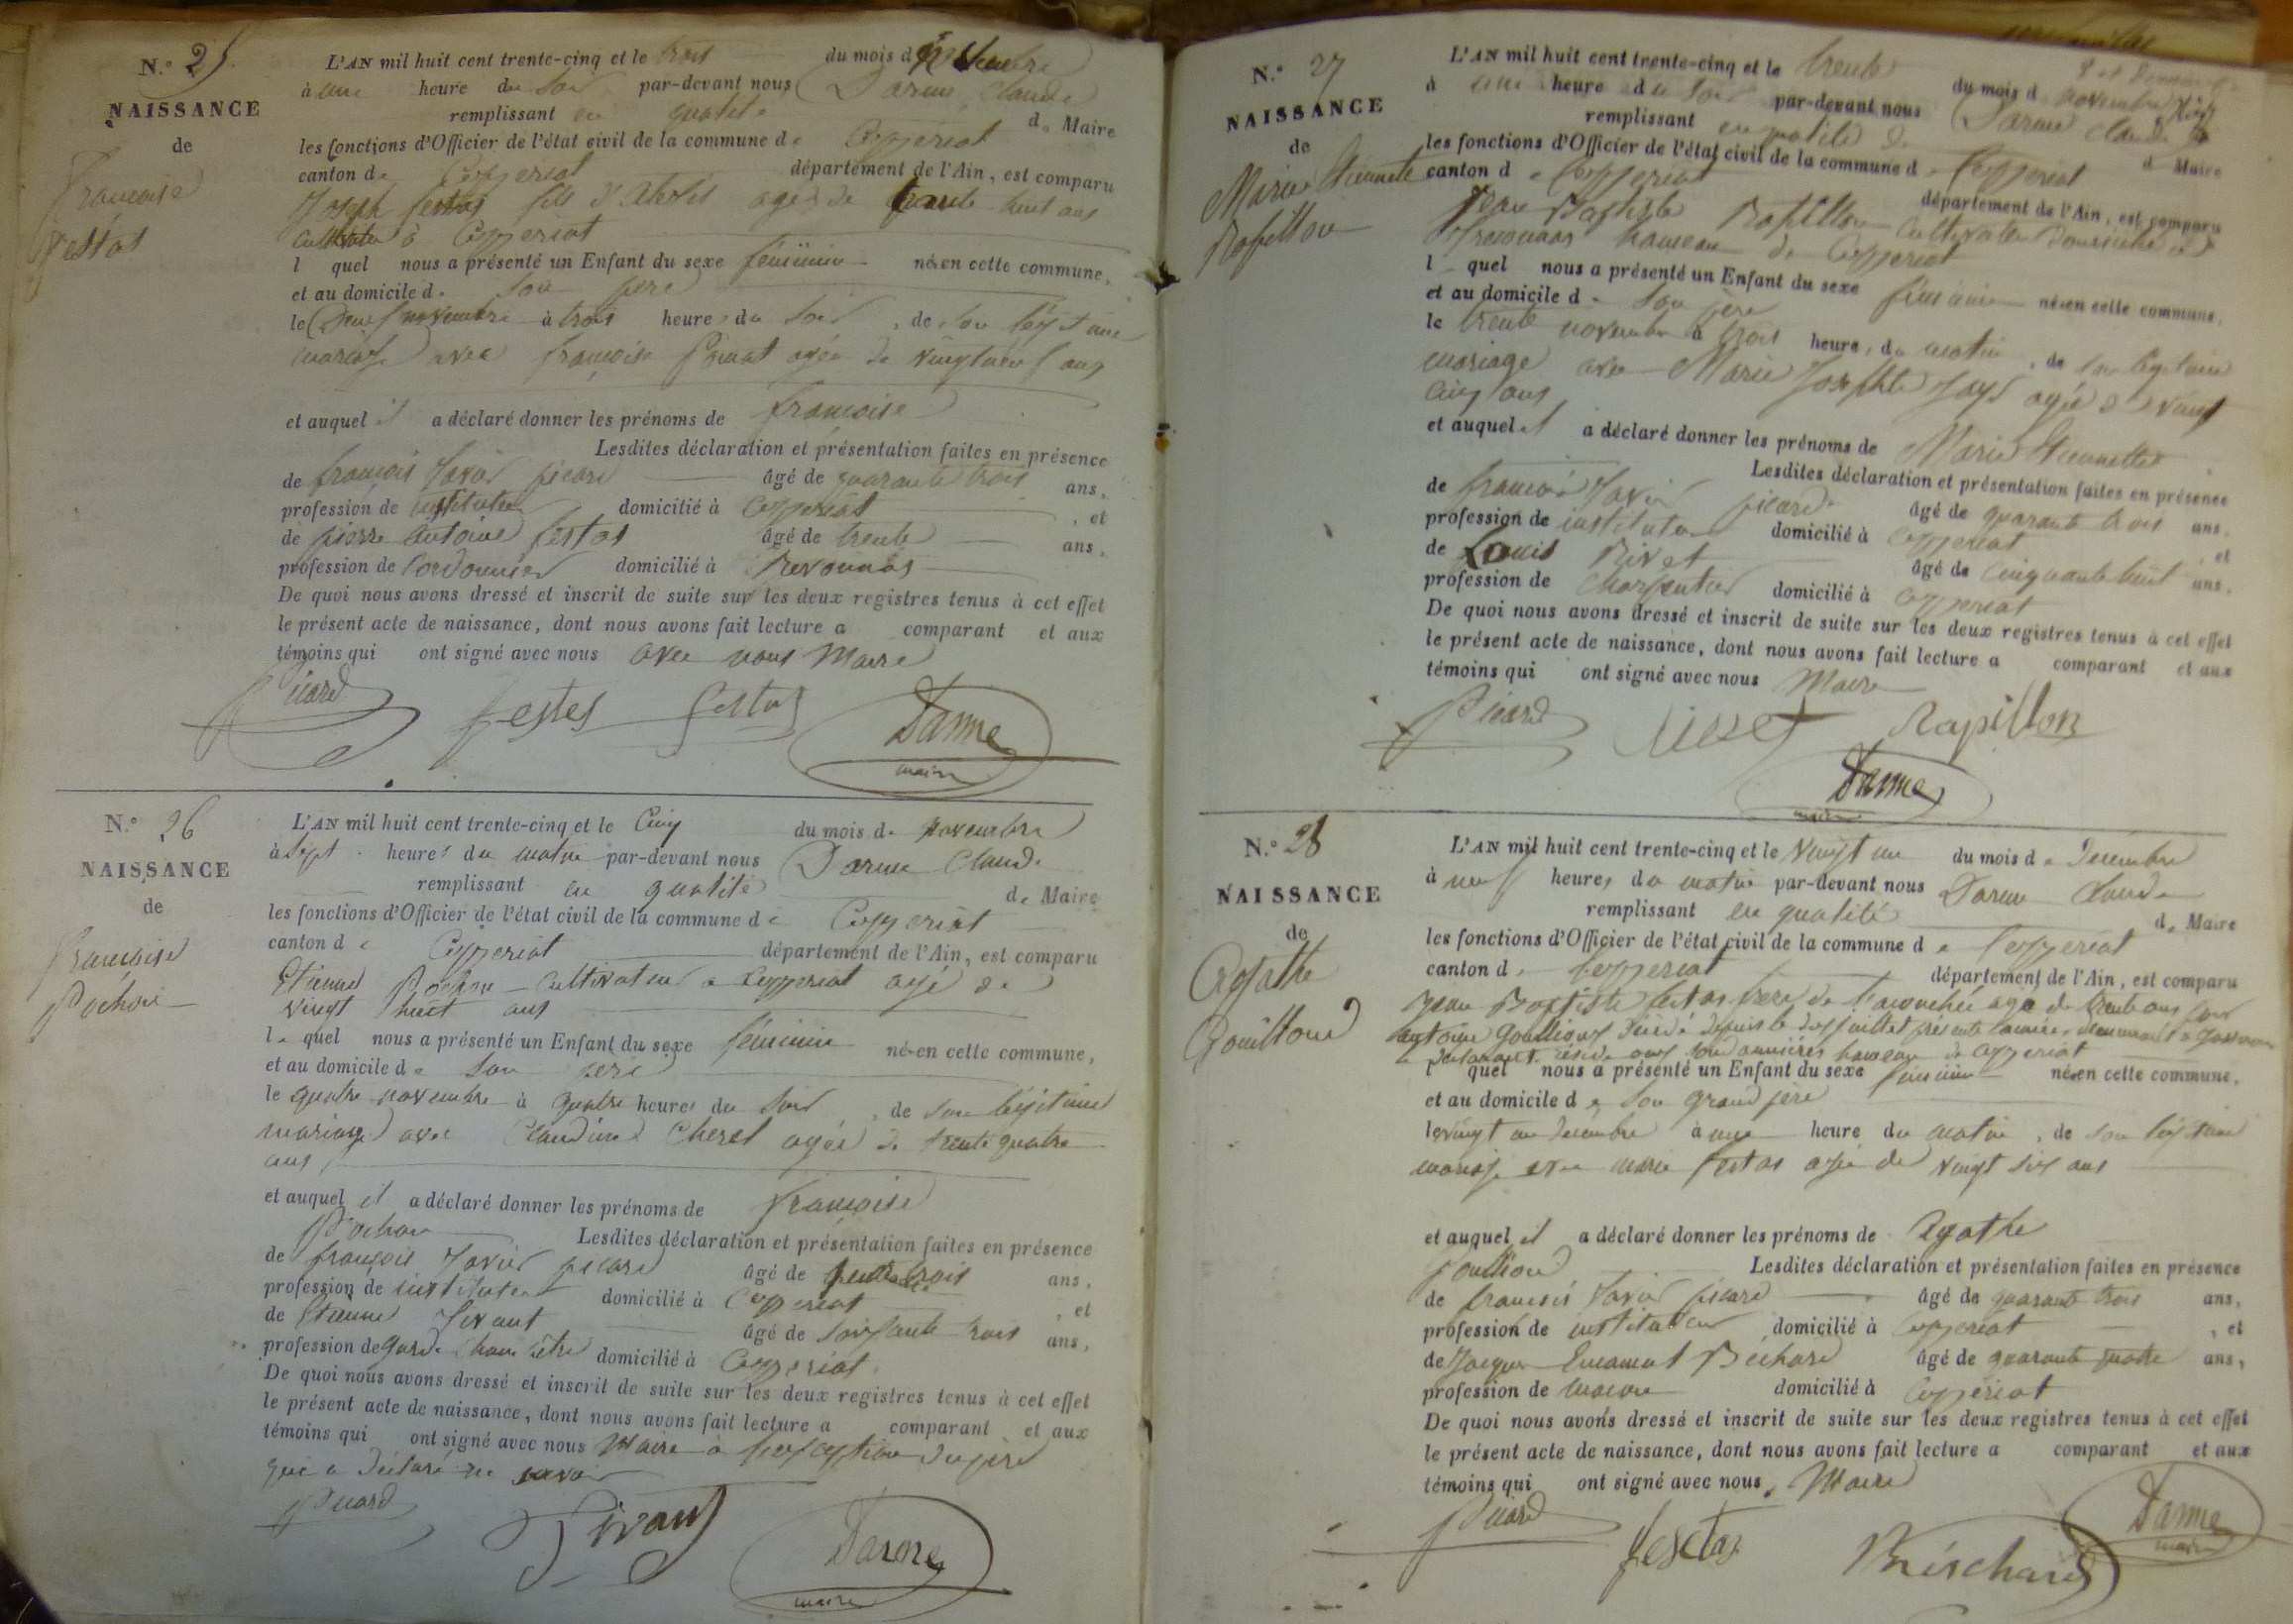 N.° 25
NAISSANCE
de
Françoise
festas
L'AN mil huit cent trente-cinq et le trois du mois d novembre
à une heure du soir par-devant nous Darme Claude
remplissant en qualité de Maire
les fonctions d'Officier de l'état civil de la commune de Ceyzeriat
canton de Ceyzeriat département de l'Ain, est comparu
Joseph festas fils d' agé de trente huit ans
cultivateur à Ceyzeriat
l quel nous a présenté un Enfant du sexe féminin né en cette commune,
et au domicile de son père
le deux novembre à trois heures du soir, de son légitime
mariage avec françoise agée de vingt neuf ans
et auquel il a déclaré donner les prénoms de françoise
Lesdites déclaration et présentation faites en présence
de françois Xavier picard âgé de quarante trois ans,
profession de instituteur domicilié à Ceyzeriat, et
de pierre antoine festas âgé de trente ans,
profession de Cordonnier domicilié à Revonnas
De quoi nous avons dressé et inscrit de suite sur les deux registres tenus à cet effet
le présent acte de naissance, dont nous avons fait lecture a comparant et aux
témoins qui ont signé avec nous avec nous Maire
Picard festas festas Darme
maire
N.° 26
NAISSANCE
de
Françoise
Pochon
L'AN mil huit cent trente-cinq et le Cinq du mois de novembre
à sept heures du matin par-devant nous Darme Claude
remplissant en qualité de Maire
les fonctions d'Officier de l'état civil de la commune de Ceyzeriat
canton de Ceyzeriat département de l'Ain, est comparu
Etienne Pochon Cultivateur a Ceyzeriat agé de
vingt huit ans
le quel nous a présenté un Enfant du sexe féminin né en cette commune,
et au domicile de son père
le quatre novembre à quatre heures du soir, de son légitime
mariage avec Claudine Cherel agée de trente quatre
ans
et auquel il a déclaré donner les prénoms de françoise
Pochon Lesdites déclaration et présentation faites en présence
de françois Xavier picard âgé de trois ans,
profession de instituteur domicilié à Ceyzeriat, et
de Etienne Sivant âgé de soixante trois ans,
profession de garde champêtre domicilié à Ceyzeriat
De quoi nous avons dressé et inscrit de suite sur les deux registres tenus à cet effet
le présent acte de naissance, dont nous avons fait lecture a comparant et aux
témoins qui ont signé avec nous Maire a l'exception du père
qui a déclaré ne savoir
Picard Sivant Darme
maire
N.° 27
NAISSANCE
de
Marie Etiennette
Rapillon
L'AN mil huit cent trente-cinq et le trente du mois d novembre
à une heure du soir par-devant nous Darme Claude
remplissant en qualité de d Maire
les fonctions d'Officier de l'état civil de la commune de Ceyzeriat
canton de Ceyzeriat département de l'Ain, est comparu
Jean Baptiste Rapillon Cultivateur Domicilié à
fresonnas hameau de Ceyzeriat
l quel nous a présenté un Enfant du sexe féminin né en cette commune,
et au domicile de son père
le trente novembre à trois heures du matin, de son légitime
mariage avec Marie Josephte Jays agée de vingt
cinq ans
et auquel il a déclaré donner les prénoms de Marie Etiennette
Lesdites déclaration et présentation faites en présence
de françois Xavier picard âgé de quarante trois ans,
profession de instituteur domicilié à Ceyzeriat, et
de Louis Rivet âgé de cinquante huit ans,
profession de Charpentier domicilié à Ceyzeriat
De quoi nous avons dressé et inscrit de suite sur les deux registres tenus à cet effet
le présent acte de naissance, dont nous avons fait lecture a comparant et aux
témoins qui ont signé avec nous Maire
Picard Rapillon
Darme
maire
N.° 28
NAISSANCE
de
Agathe
Gouilloud
L'AN mil huit cent trente-cinq et le vingt un du mois de Decembre
à neuf heures du matin par-devant nous Darme Claude
remplissant en qualité de Maire
les fonctions d'Officier de l'état civil de la commune de Ceyzeriat
canton de Ceyzeriat département de l'Ain, est comparu
Jean Baptiste festas frere de l'accouchée agé de trente ans
antoine décédé depuis le juillet présente année
hameau de Ceyzeriat
l quel nous a présenté un Enfant du sexe féminin né en cette commune,
et au domicile de son grand père
le vingt un decembre à une heure du matin, de son légitime
mariage avec marie festas agée de vingt six ans
et auquel il a déclaré donner les prénoms de Agathe
Lesdites déclaration et présentation faites en présence
de françois Xavier picard âgé de quarante trois ans,
profession de instituteur domicilié à Ceyzeriat, et
de Jacques Bréchard âgé de quarante quatre ans,
profession de maçon domicilié à Ceyzeriat
De quoi nous avons dressé et inscrit de suite sur les deux registres tenus à cet effet
le présent acte de naissance, dont nous avons fait lecture a comparant et aux
témoins qui ont signé avec nous, Maire
Picard festas Darme
maire